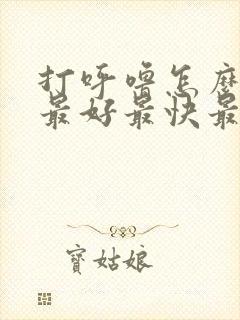 打呼噜怎么
最好最快最
寶姑娘